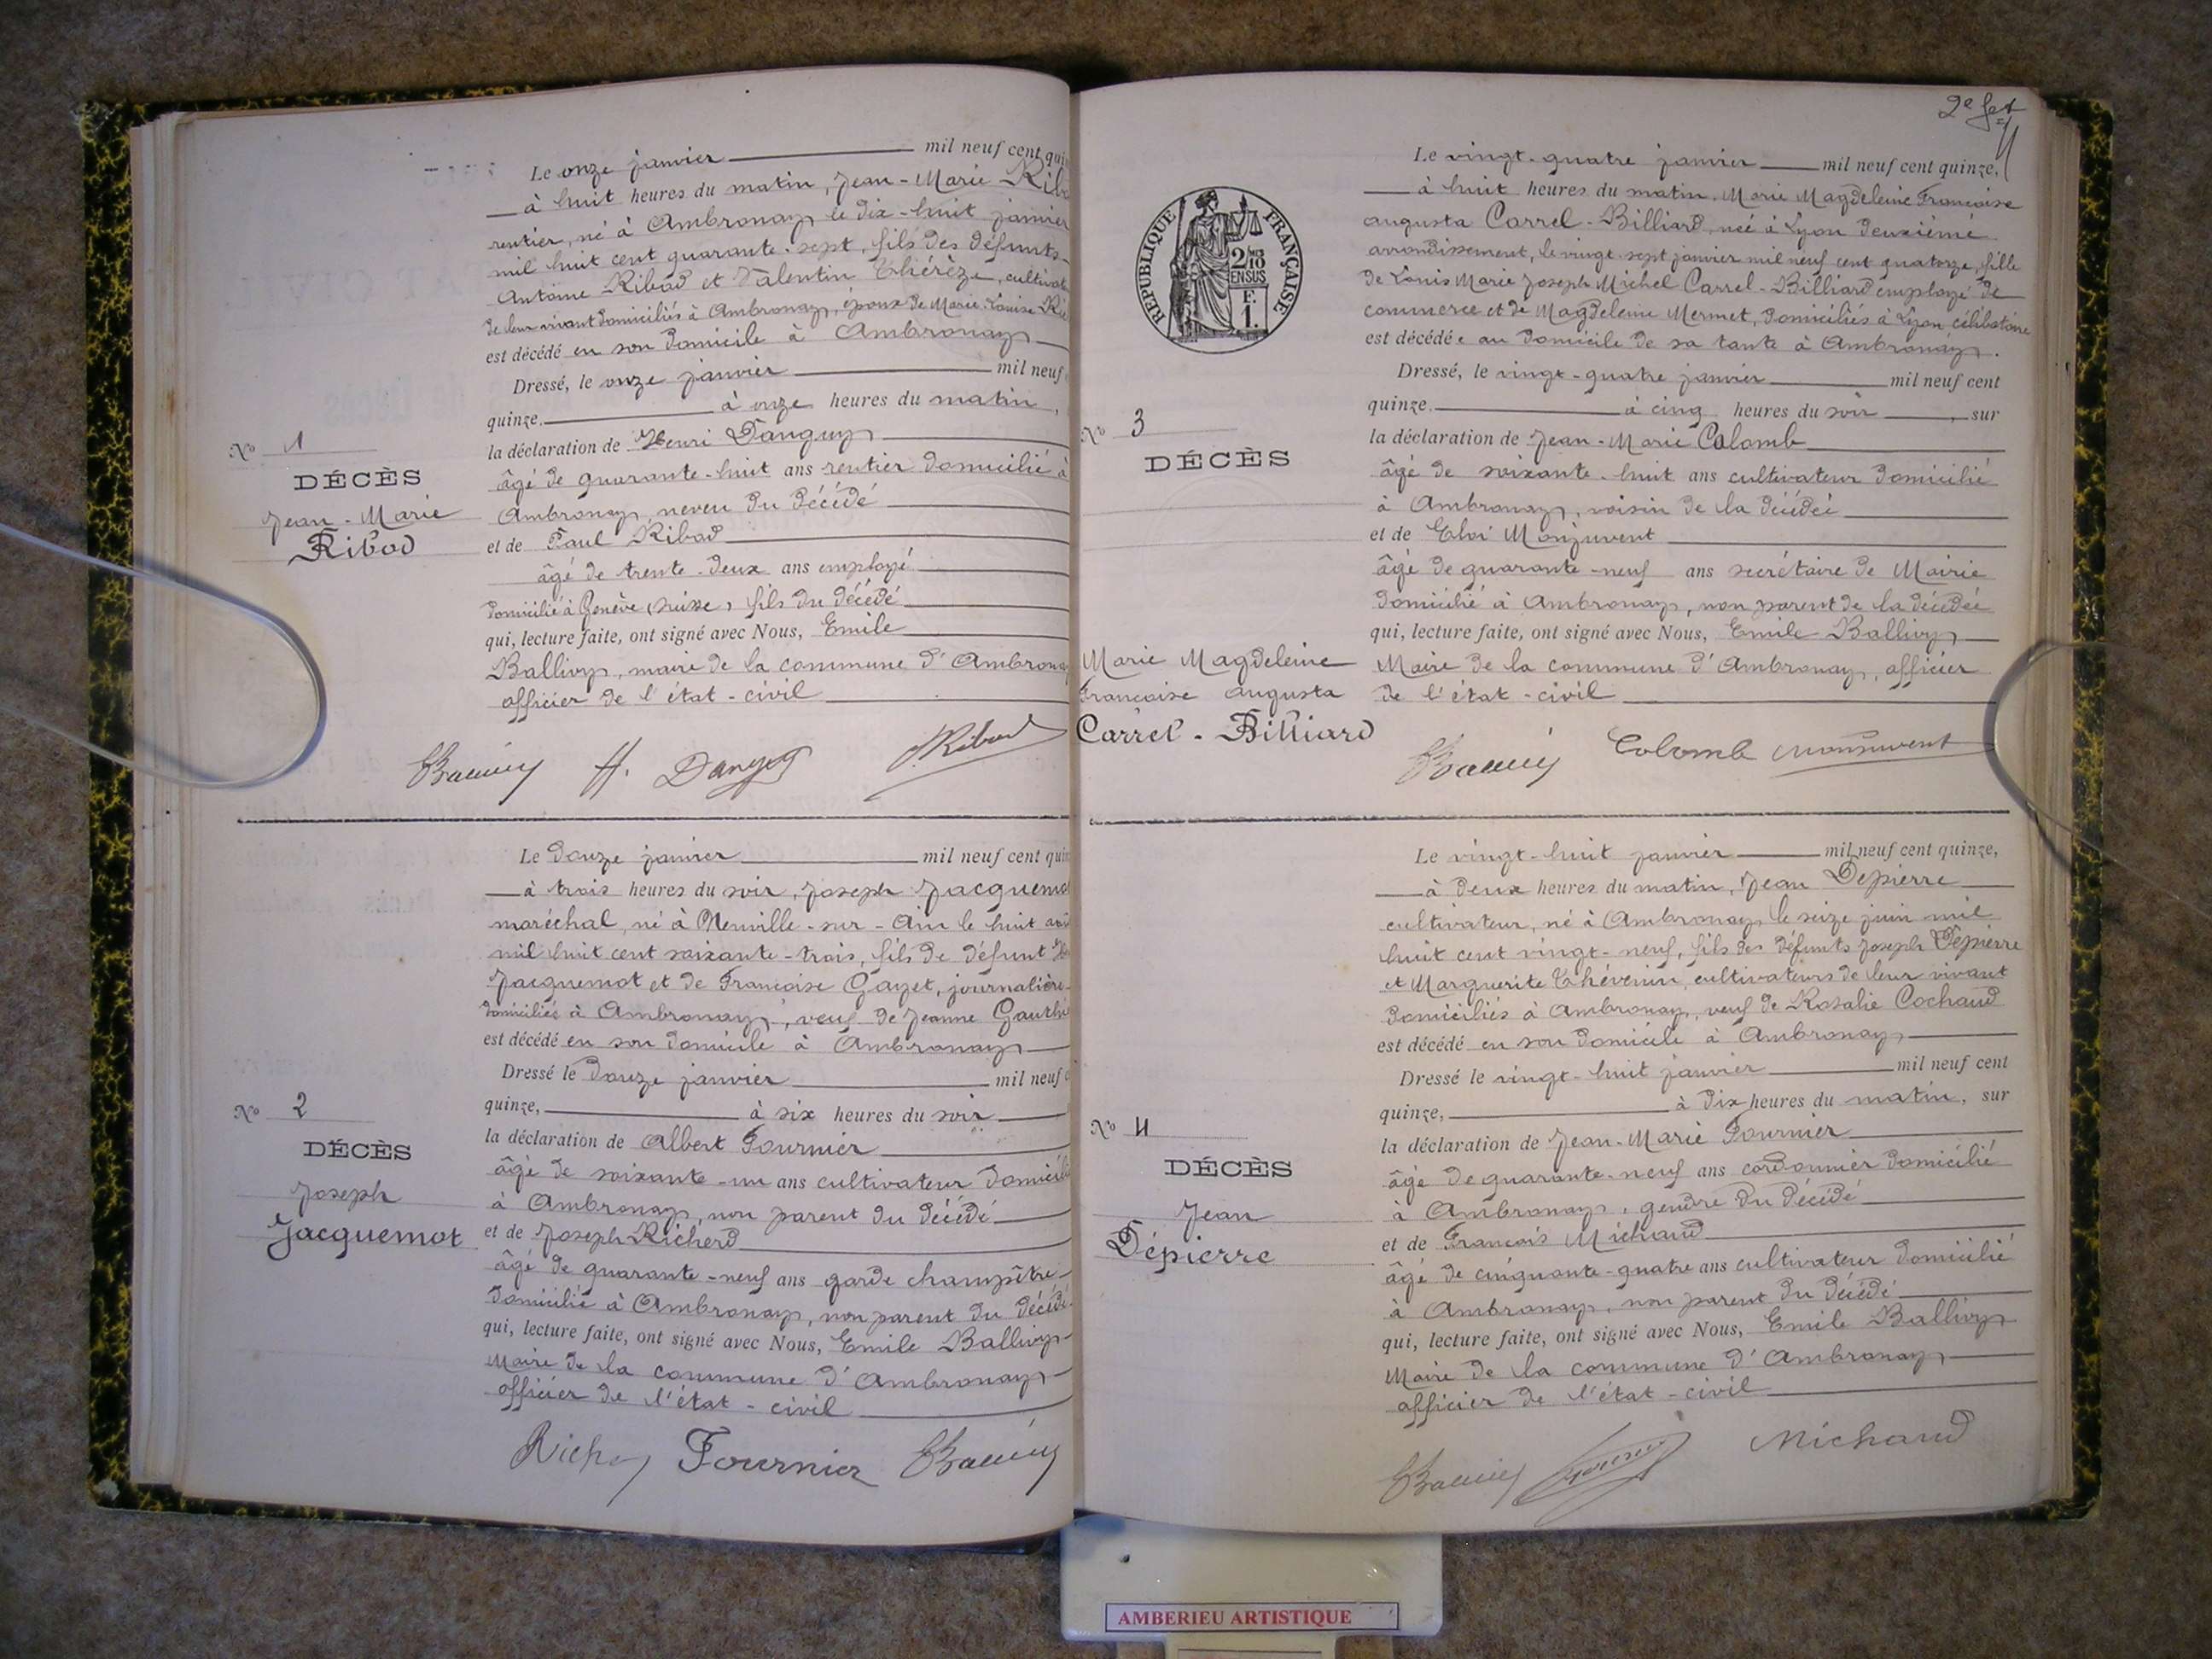 Le onze janvier mil neuf cent qui
à huit heures du matin, Jean-Marie Ribo
rentier, né à Ambronay le dix-huit janvier
mil huit cent quarante-sept, fils des défunts
Antoine Ribod et Valentin Thérèze, cultivat
de leur vivant domiciliés à Ambronay, époux de Marie Louise
est décédé en son domicile à Ambronay
Dressé, le onze janvier mil neuf
quinze, à onze heures du matin,
N° 1
la déclaration de Henri Danguy
DÉCÈS
âgé de quarante-huit ans rentier domicilié à
Jean-Marie
Ambronay, neveu du décédé
Ribod
et de Paul Ribod
âgé de trente-deux ans employé
domicilié à Genève (Suisse) fils du décédé
qui, lecture faite, ont signé avec Nous, Emile
Ballivy, maire de la commune d'Ambronay
officier de l'état-civil
Ballivy H. Danguy Ribod
Le douze janvier mil neuf cent quin
à trois heures du soir, Joseph Jacquemot
maréchal, né à Neuville-sur-Ain le huit
mil huit cent soixante-trois, fils de défunt
Jacquemot et de Françoise Gayet, journalière
domiciliés à Ambronay, veuf de Jeanne Gauthi
est décédé en son domicile à Ambronay
Dressé le douze janvier mil neuf
N° 2
quinze, à six heures du soir
DÉCÈS
la déclaration de Albert Fournier
âgé de soixante-un ans cultivateur domicili
Joseph
à Ambronay, non parent du décédé
Jacquemot
et de Joseph Richerd
âgé de quarante-neuf ans garde champêtre
domicilié à Ambronay, non parent du décédé
qui, lecture faite, ont signé avec Nous, Emile Ballivy
Maire de la commune d'Ambronay
officier de l'état-civil
Fournier Ballivy
2e
Le vingt-quatre janvier mil neuf cent quinze,
à huit heures du matin, Marie Magdeleine Françoise
Augusta Carrel-Billiard, née à Lyon deuxième
arrondissement, le vingt-sept janvier mil neuf cent quatorze, fille
de Louis Marie Joseph Michel Carrel-Billiard employé de
commerce et de Magdeleine Mermet, domiciliés à Lyon, célibataire
est décédée au domicile de sa tante à Ambronay.
RÉPUBLIQUE FRANÇAISE
2/10
EN SUS
F.
1.
Dressé, le vingt-quatre janvier mil neuf cent
quinze, à cinq heures du soir, sur
N° 3
la déclaration de Jean-Marie Colomb
DÉCÈS
âgé de soixante-huit ans cultivateur domicilié
à Ambronay, voisin de la décédée
et de Eloi Monjuvent
âgé de quarante-neuf ans secrétaire de Mairie
domicilié à Ambronay, non parent de la décédée
qui, lecture faite, ont signé avec Nous, Emile Ballivy
Marie Magdeleine
Maire de la commune d'Ambronay, officier
Françoise Augusta
de l'état-civil
Carrel-Billiard
Ballivy Colomb Monjuvent
Le vingt-huit janvier mil neuf cent quinze,
à deux heures du matin, Jean Dépierre
cultivateur, né à Ambronay le seize juin mil
huit cent vingt-neuf, fils des défunts Joseph Dépierre
et Marguerite Thévenin, cultivateurs de leur vivant
domiciliés à Ambronay, veuf de Rosalie Cochaud
est décédé en son domicile à Ambronay
Dressé le vingt-huit janvier mil neuf cent
quinze, à dix heures du matin, sur
N° 4
la déclaration de Jean-Marie Fournier
DÉCÈS
âgé de quarante-neuf ans cordonnier domicilié
Jean
à Ambronay, gendre du décédé
Dépierre
et de François Michaud
âgé de cinquante-quatre ans cultivateur domicilié
à Ambronay, non parent du décédé
qui, lecture faite, ont signé avec Nous, Emile Ballivy
Maire de la commune d'Ambronay
officier de l'état-civil
Ballivy Michaud
AMBERIEU ARTISTIQUE